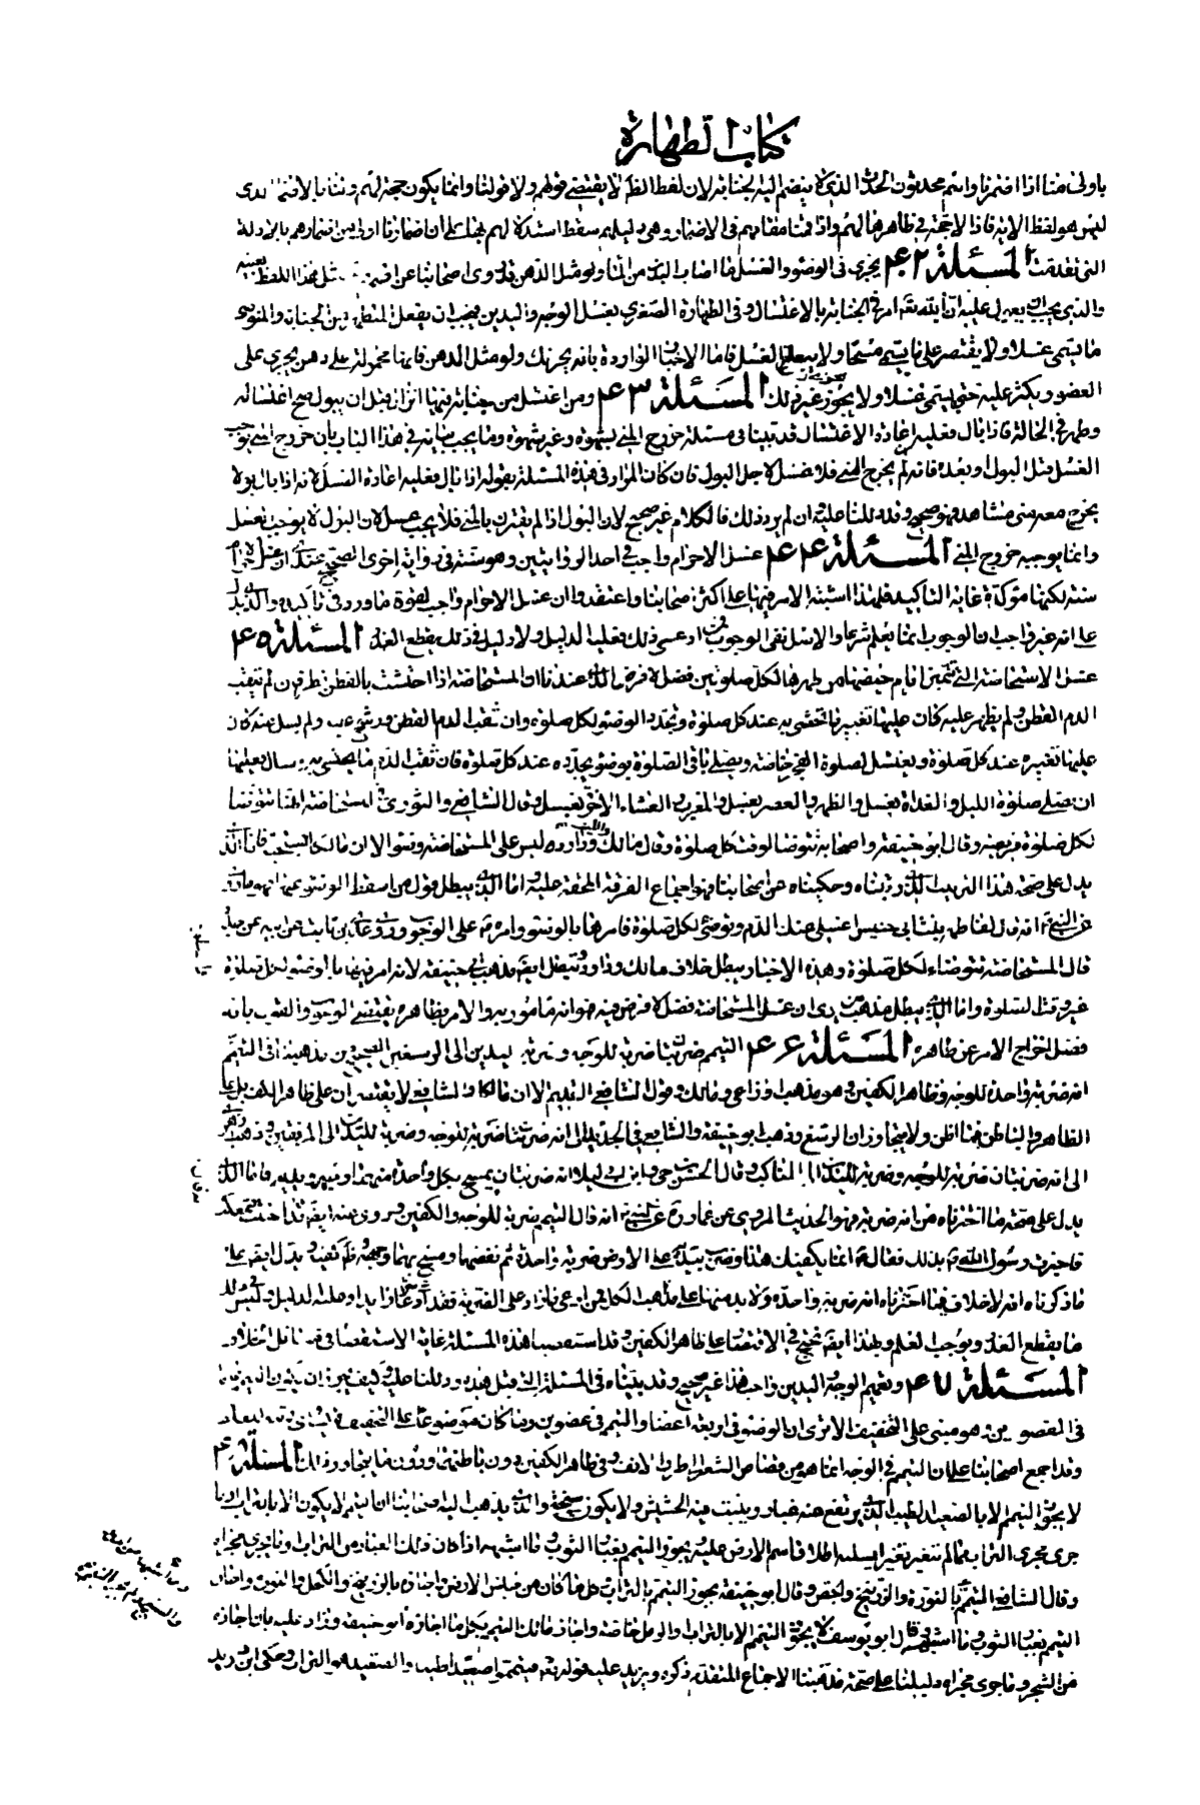 كتاب الطهارة
باولى منا اذا اضمرنا وانتم محدثون الحدث الذى لا ينضم اليه الجنابة لان لفظ الظاهر لا يقتضى قولهم ولا قولنا وانما يكون حجة لهم وتنا بالاضمار الذى
ليس هو لفظ الاية فاذا لا حجة فى ظاهرها لهم واذا قمنا مقامهم فى الاضمار وهى دليلهم سقط استدلالهم بها على ان اضمارنا اولى من اضمارهم بالادلة
التى تقدمت المسئلة ٤٢ يجزى فى الوضوء والغسل ما اصاب البدن من الماء ولو مثل الدهن قد روى اصحابنا عن ائمتهم مثل هذا اللفظ بعينه
والذى يجب ان يعول عليه ان الله تع امر فى الجنابة بالاغتسال وفى الطهارة الصغرى بغسل الوجه واليدين فيجب ان يفعل المتطهر من الجنابة والمتوضى
ما يسمى غسلا ولا يقتصر على ما يسمى مسحا ولا يبلغ الغسل فاما الاخبار الواردة بانه يجزيك ولو مثل الدهن فانها محمولة على دهن يجرى على
العضو ويكثر عليه حتى يسمى غسلا ولا يجوز غير ذلك المسئلة ٤٣ ومن اغتسل من جنابة فيها انزال قبل ان يبول صح اغتساله
وطهر فى الحالة فاذا بال فعليه اعادة الاغتسال قد بينا فى مسئلة خروج المنى بشهوة وغير شهوة وما يجب بيانه فى هذا الباب بان خروج المنى يوجب
الغسل قبل البول او بعده فانه لم يخرج المنى فلا غسل لاجل البول فان كان المراد فى هذه المسئلة بقوله اذا بال فعليه اعادة الغسل لانه اذا بال بولا
يخرج معه منى مشاهد فهو صحيح وقد دللنا عليه وان لم يرد ذلك فالكلام غير صحيح لان البول اذا لم يقترن بالمنى فلا يجب غسل لان البول لا يوجب الغسل
وانما يوجبه خروج المنى المسئلة ٤٤ غسل الاحرام واجب فى احد الروايتين وهو سنة فى رواية اخرى الصحيح عندى ان غسل الاحرام
سنة لكنها مؤكدة غاية التاكيد فلهذا اشتبه الامر فيها على اكثر اصحابنا واعتقدوا ان غسل الاحرام واجب لقوة ما ورد فى تاكيده والذى يدل
على انه غير واجب ان الوجوب انما يعلم شرعا والاصل نفى الوجوب فمن ادعى ذلك فعليه الدليل ولا دليل فى ذلك يقطع العذر المسئلة ٤٥
غسل الاستحاضة التى تتميز ايام حيضها من طهرها لكل صلوتين فضل لا فرض الذى عندنا ان المستحاضة اذا احتشت بالقطن نظر فان لم يثقب
الدم القطن ولم يظهر عليه كان عليها تغيير ما تحتشى به عند كل صلوة وتجدد الوضوء لكل صلوة وان ثقب الدم القطن ولم يسل عنه كان
عليها تغييره عند كل صلوة وتغتسل لصلوة الفجر خاصة ويصلى باقى الصلوة بوضوء يجدده عند كل صلوة فان ثقب الدم ما يحتشى به وسال فعليها
ان تصلى صلوة الليل والغداة بغسل والظهر والعصر بغسل والمغرب والعشاء الاخرة بغسل وقال الشافعى والثورى المستحاضة انها تتوضأ
لكل صلوة فريضة وقال ابو حنيفة واصحابه تتوضأ لوقت كل صلوة وقال مالك وداود ليس على المستحاضة وضوء الا ان مالكا استحب فاما الذى
يدل على صحة هذا الترتيب الذى رتبناه وحكيناه عن اصحابنا فهو اجماع الفرقة المحقة عليه واما الذى يبطل قول من اسقط الوضوء عنها فهو ما روى
عن النبى انه قال لفاطمة بنت ابى حبيش اغتسلى عنك الدم وتوضئ لكل صلوة فامرها بالوضوء وامره على الوجوب وروى عدى بن ثابت عن ابيه عن جده
قال المستحاضة تتوضاء لكل صلوة وهذه الاخبار يبطل خلاف مالك وداود ويبطل ايضا مذهب ابى حنيفة لانه امر فيها بالوضوء لكل صلوة
غير وقت لصلوة واما الذى يبطل مذهب من يرى ان غسل المستحاضة فضل لا فرض فيه فهو انه مامور به والامر بظاهره يقتضى الوجوب والقول بانه
فضل اخراج الامر عن ظاهره المسئلة ٤٦ التيمم ضربتان ضربة للوجه وضربة لليدين الى الرسغين الصحيح من مذهبنا فى التيمم
انه ضربة واحدة للوجه وظاهر الكفين وهو مذهب الاوزاعى ومالك وقول الشافعى القديم الا ان مالكا والشافعى لا يقتصران على ظاهر الكف بل على
الظاهر والباطن فيما اظن ولا يتجاوزان الرسغ وذهب ابو حنيفة والشافعى فى الجديد الى انه ضربتان ضربة للوجه وضربة لليدين الى المرفقين وذهب الزهرى
الى انه ضربتان ضربة للوجه وضربة لليدين الى المناكب وقال الحسن بن حى وابن ابى ليلى انه ضربتان يمسح بكل واحدة منهما وجهه ويديه فاما الذى
يدل على صحة ما اخترناه من انه ضربة فهو الحديث المروى عن عمار عن النبى انه قال التيمم ضربة للوجه والكفين وروى عنه ايضا قد اجنبت فتمعكت
فاخبرت رسول الله بذلك فقال انما يكفيك هذا وضرب بيديه على الارض ضربة واحدة ثم نفضهما ومسح بهما وجهه وظاهر كفيه ويدل ايضا على
ما ذكرناه انه لا خلاف فيما اخترناه انه ضربة واحدة ولا بد منها على مذهب الكل فمن ادعى ما زاد على الضربة فقد ادعى شرعا زايدا وعليه الدليل وليس فى ذلك
ما يقطع العذر ويوجب العلم وبهذا ايضا نحتج فى الاقتصار على ظاهر الكفين وقد استقصينا هذه المسئلة غاية الاستقصاء فى مسائل الخلاف
المسئلة ٤٧ وتعميم الوجه واليدين واجب هذا غير صحيح وقد بيناه فى المسئلة التى قبل هذه ودللنا عليه وكيف يجوز ان يكون التيميم
فى العضوين وهو مبنى على التخفيف الا ترى ان الوضوء فى اربعة اعضاء والتيمم فى عضوين وما كان موضوعا على التخفيف
وقد اجمع اصحابنا على ان التيمم فى الوجه انما هو من قصاص الشعر الى طرف الانف وفى ظاهر الكفين دون باطنهما ودون ما يتجاوز ذلك المسئلة ٤٨
لا يجوز التيمم الا بالصعيد الطيب الذى يرتفع عنه غبار وينبت فيه الحشيش ولا يكون سبخة والذى يذهب اليه اصحابنا ان التيمم لا يكون الا بالتراب او ما
جرى مجرى التراب مما لم يتغير تغيرا يسلبه اطلاق اسم الارض عليه ويجوز التيمم بغبار الثوب وما اشبهه اذا كان ذلك الغبار من التراب وما يجرى مجراه
وقال الشافعى التيمم بالنورة والزرنيخ والجص وقال ابو حنيفة يجوز التيمم بالتراب وكل ما كان من جنس الارض واجازه بالزرنيخ والكحل والنورة واجاز
التيمم بغبار الثوب وما اشبهه قال ابو يوسف لا يجوز التيمم الا بالتراب والرمل خاصة واجاز مالك التيمم بكل ما اجازه ابو حنيفة وزاد عليه بان اجازه
من الشجر وما جرى مجراه دليلنا على صحة مذهبنا الاجماع المتقدم ذكره ويزيد عليه قوله تع فتيمموا صعيدا طيبا والصعيد هو التراب وحكى ابن دريد